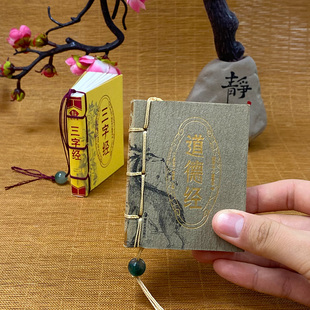 三字经
三字经
道德经
靜